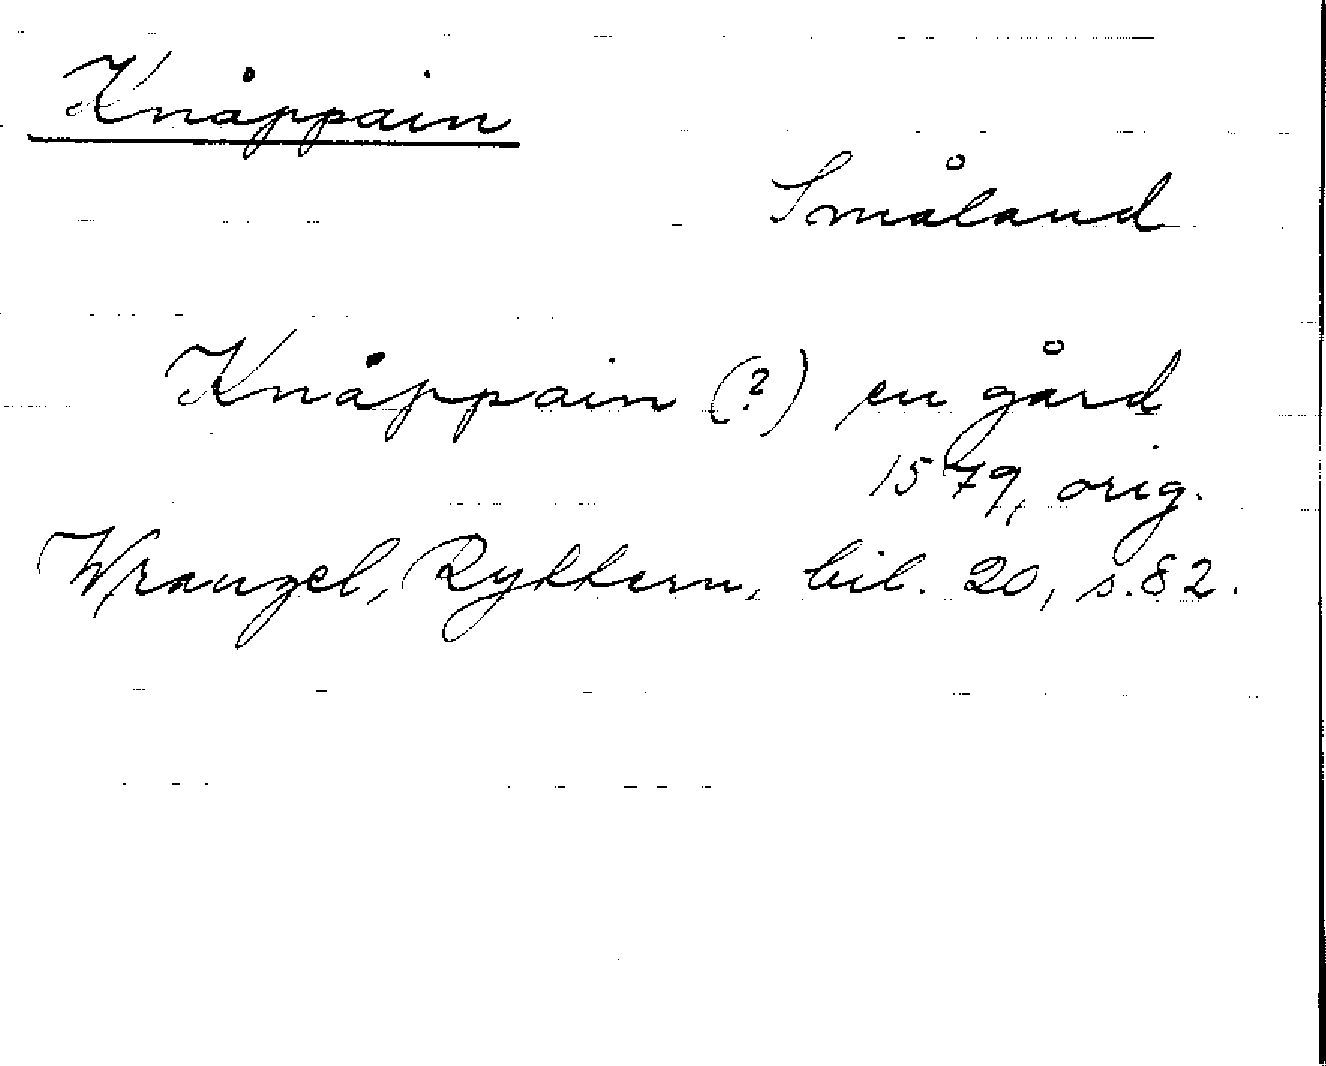 Knåppain
Småland
Knåppain (?) en gård
1579, orig.
Wrangel, Ryttern, bil. 20, s. 82.